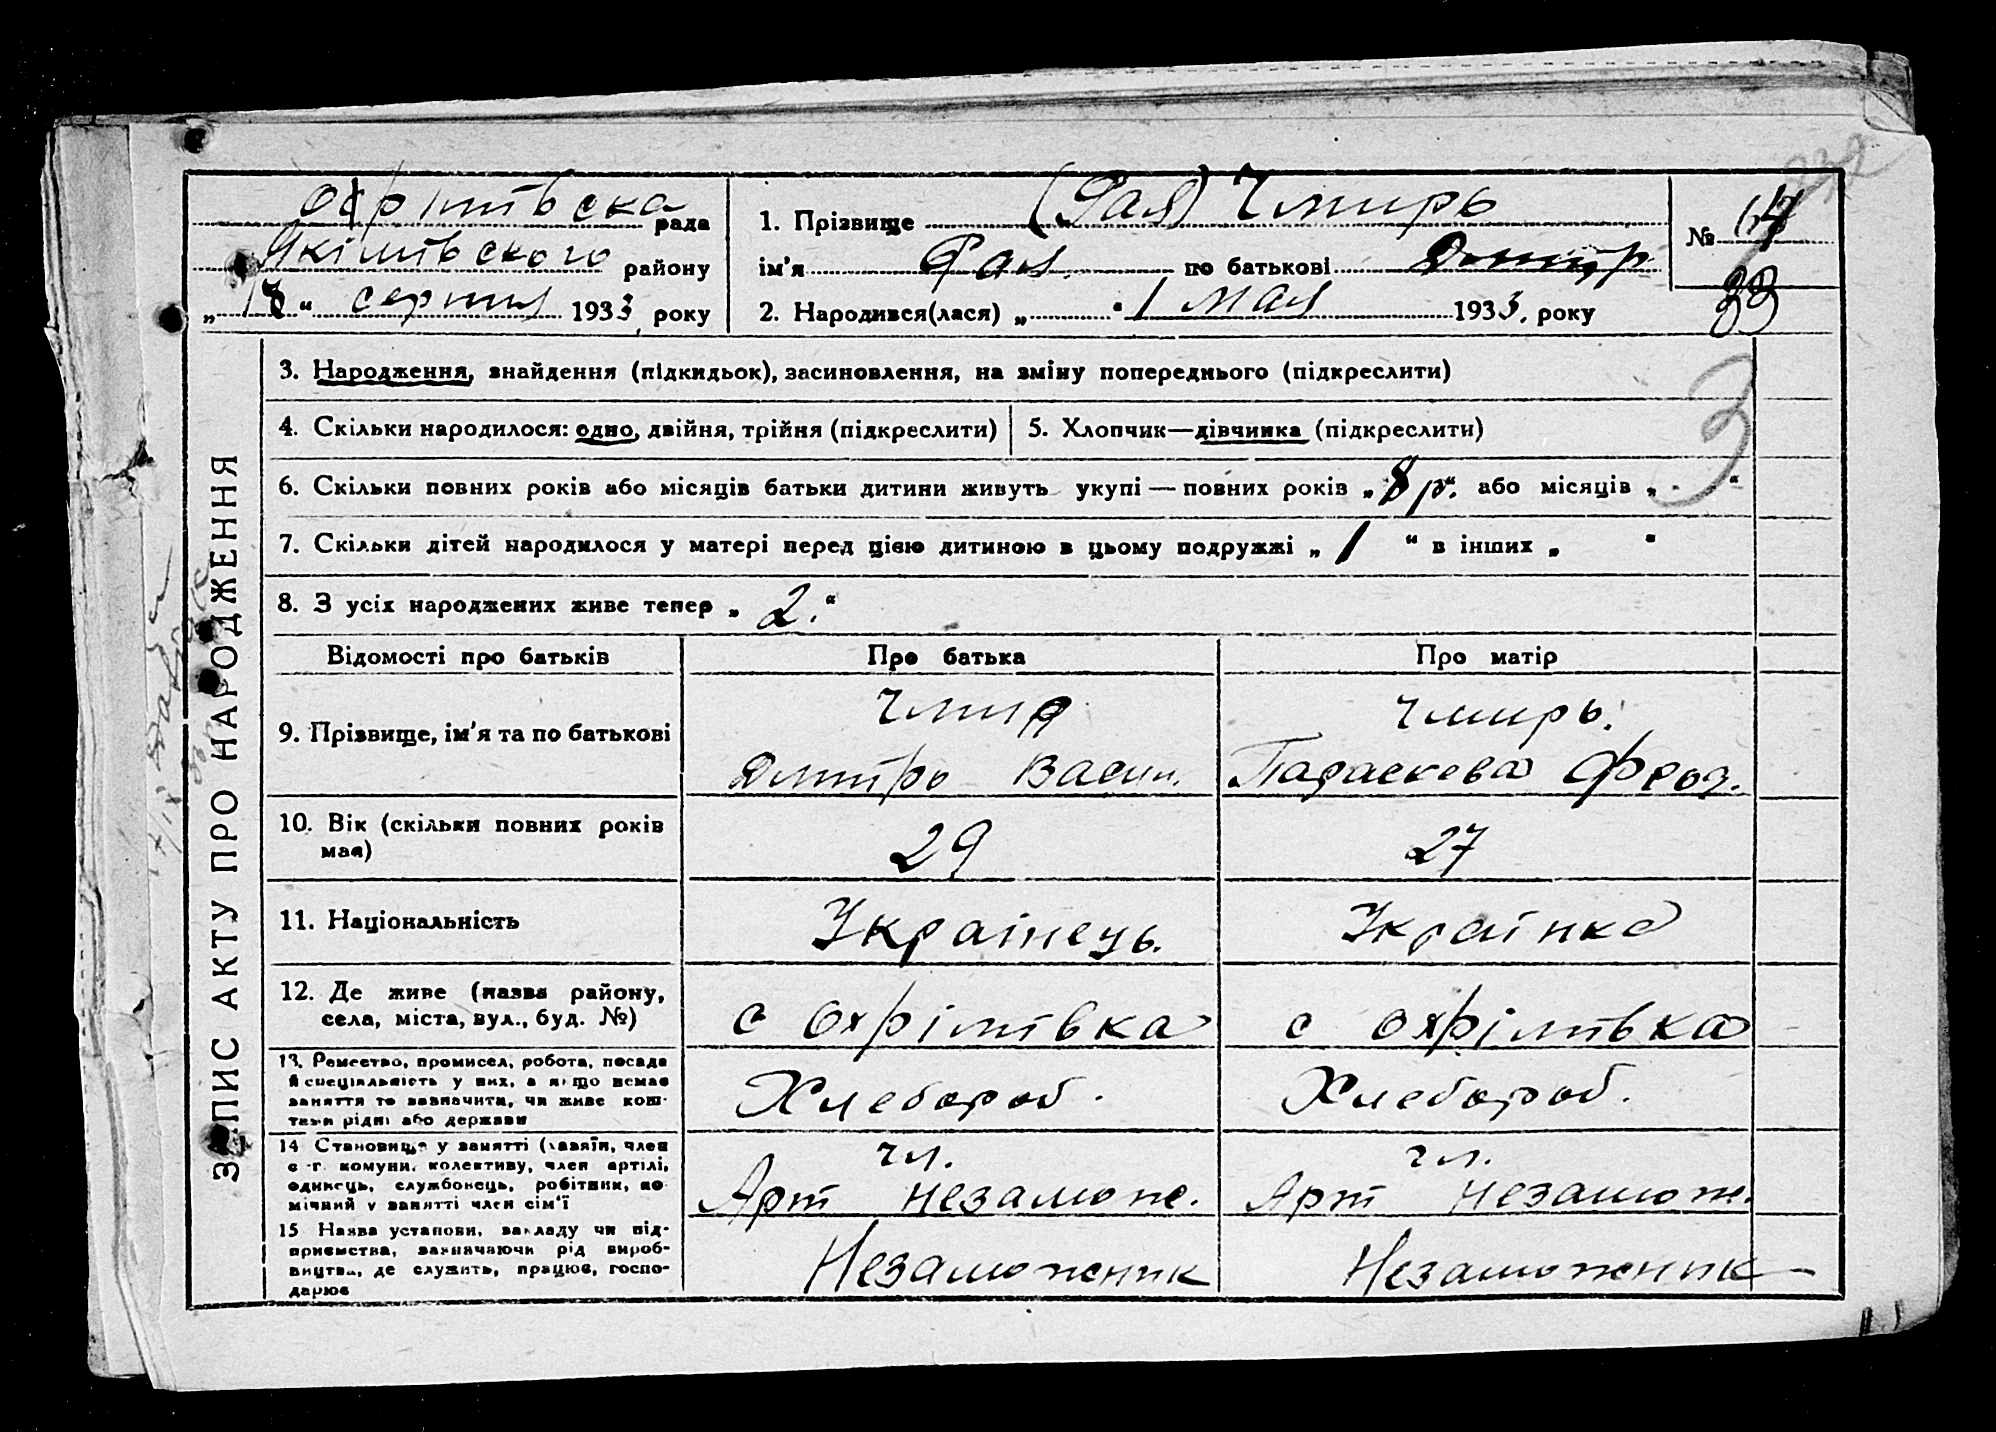 ЗАПИС АКТУ ПРО НАРОДЖЕННЯ
Охрімівска рада
Якімівского району
„ 18 “ серпня 1933 року
1. Прізвище (Рая) Чмирь
ім'я Рая по батькові Дмитр
2. Народився(лася) „ “ 1 мая 1933, року
№
33
232
3. Народження, знайдення (підкидьок), засиновлення, на зміну попереднього (підкреслити)
3
4. Скільки народилося: одно, двійня, трійня (підкреслити)
5. Хлопчик—дівчинка (підкреслити)
6. Скільки повних років або місяців батьки дитини живуть укупі — повних років „ 8 р“. або місяців „ - “
7. Скільки дітей народилося у матері перед цією дитиною в цьому подружжі „ 1 “ в інших „ “
8. З усіх народжених живе тепер „ 2. “
Відомості про батьків
Про батька
Про матір
9. Прізвище, ім'я та по батькові
Чмир
Дмитро Васил.
Чмирь.
Параскева Фроз.
10. Вік (скільки повних років має)
29
27
11. Національність
Українець.
Українка
12. Де живе (назва району,
села, міста, вул., буд. №)
с Охрімівка
с Охрімівка
13. Ремество, промисел, робота, посада
й спеціяльність у них, а якщо немає
заняття то зазначити, чи живе кош-
тами рідні або держави
Хлебороб.
Хлебороб.
14 Становище у занятті (хазяїн, член
с.-г. комуни, колективу, член артілі,
одинець, службовець, робітник, по-
мічний у занятті член сім'ї
чл.
Арт Незамож.
чл.
Арт Незамож.
15 Назва установи, закладу чи під-
приємства, зазначаючи рід вироб-
ництва, де служить, працює, госпо-
дарює
Незаможник
Незаможник